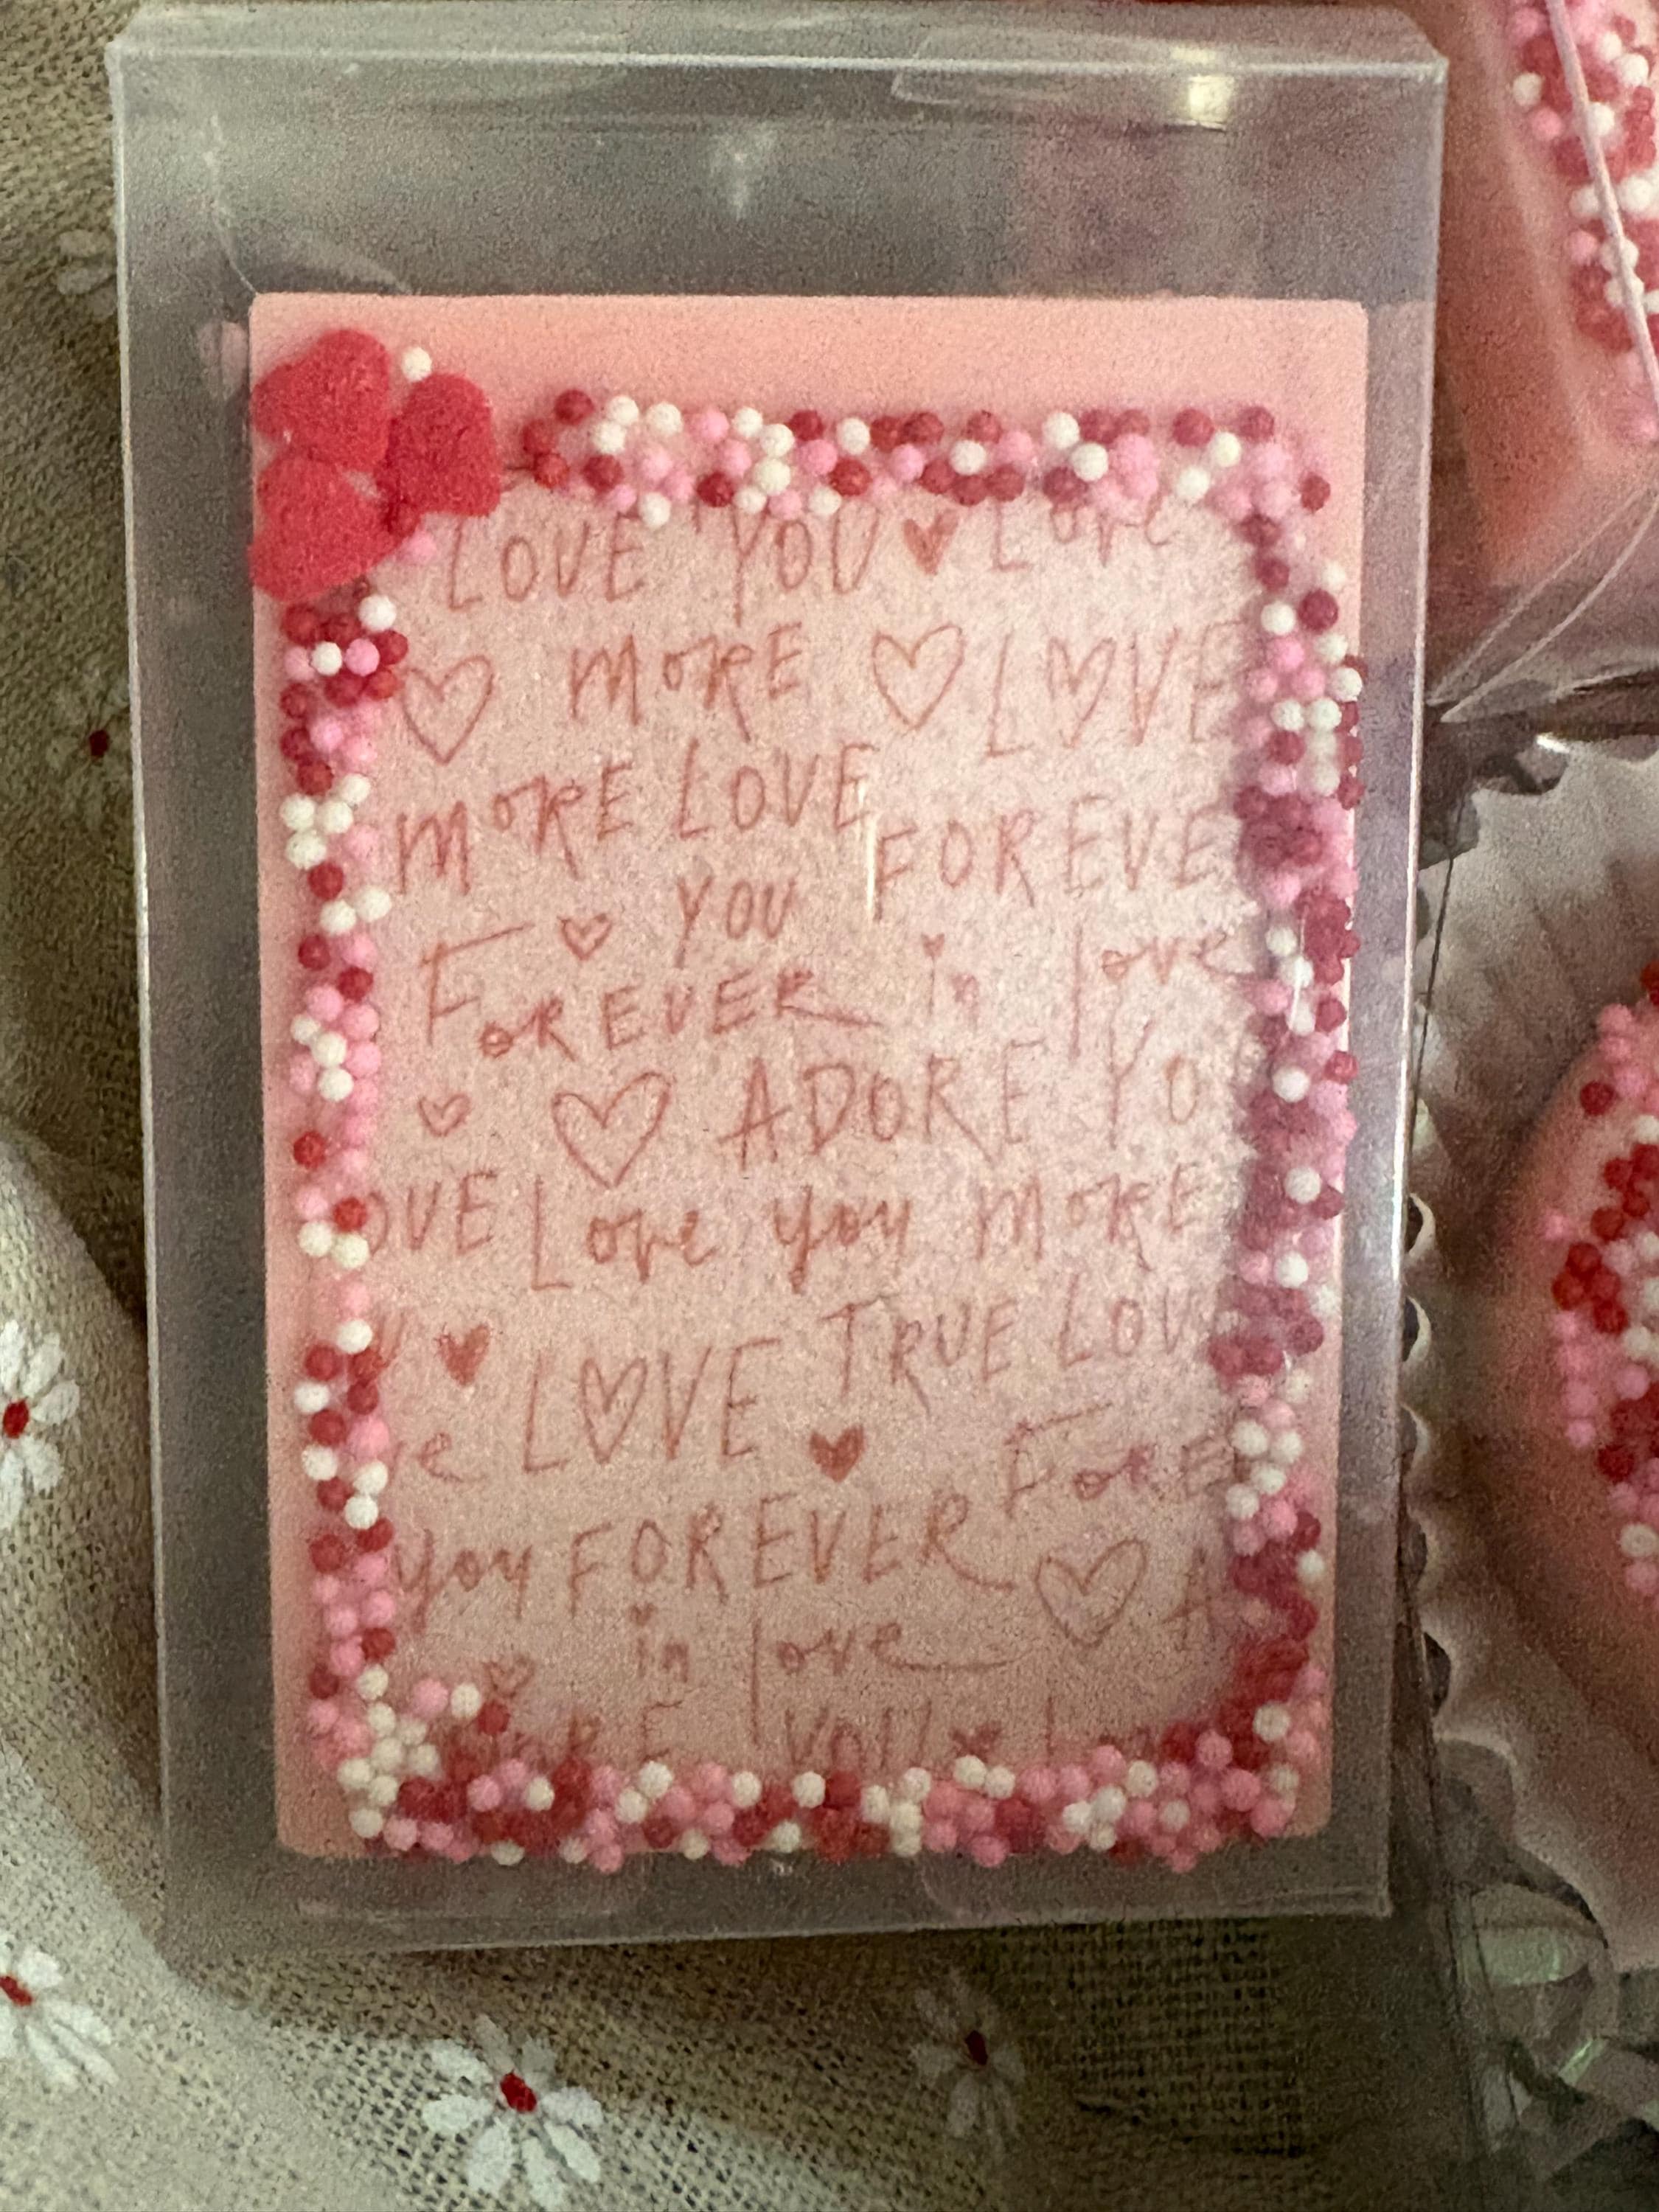 LOVE YOU Love
MORE LOVE
MORE LOVE
YOU FOREVE
FOREVER in love
ADORE YO
OVE Love you MORE
LOVE TRUE LOV
e FORE
you FOREVER
in love A
YOU